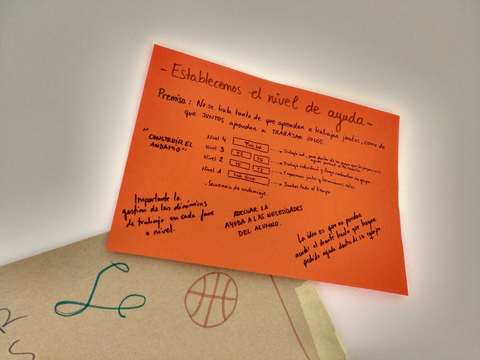 - Establecemos el nivel de ayuda -
Premisa: No se trata tanto de que aprendan a trabajar juntos, como de
que JUNTOS aprendan a TRABAJAR SOLOS.
"CONSTRUIR EL
ANDAMIO"
Nivel 4
Nivel 3
Nivel 2 Trabajo individual y luego
Nivel 1 Juntos todo el tiempo
. Secuencia de andamiaje.
Importante la
gestión de las dinámicas
de trabajo en cada fase
o nivel.
ADECUAR LA
AYUDA A LAS NECESIDADES
DEL ALUMNO.
La idea es que no puedan
acudir al docente hasta que hayan
pedido ayuda dentro de su equipo.